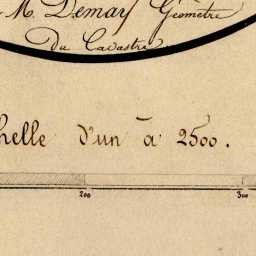 M. Demay Géometre
du Cadastre
helle d'un à 2500.
200 300